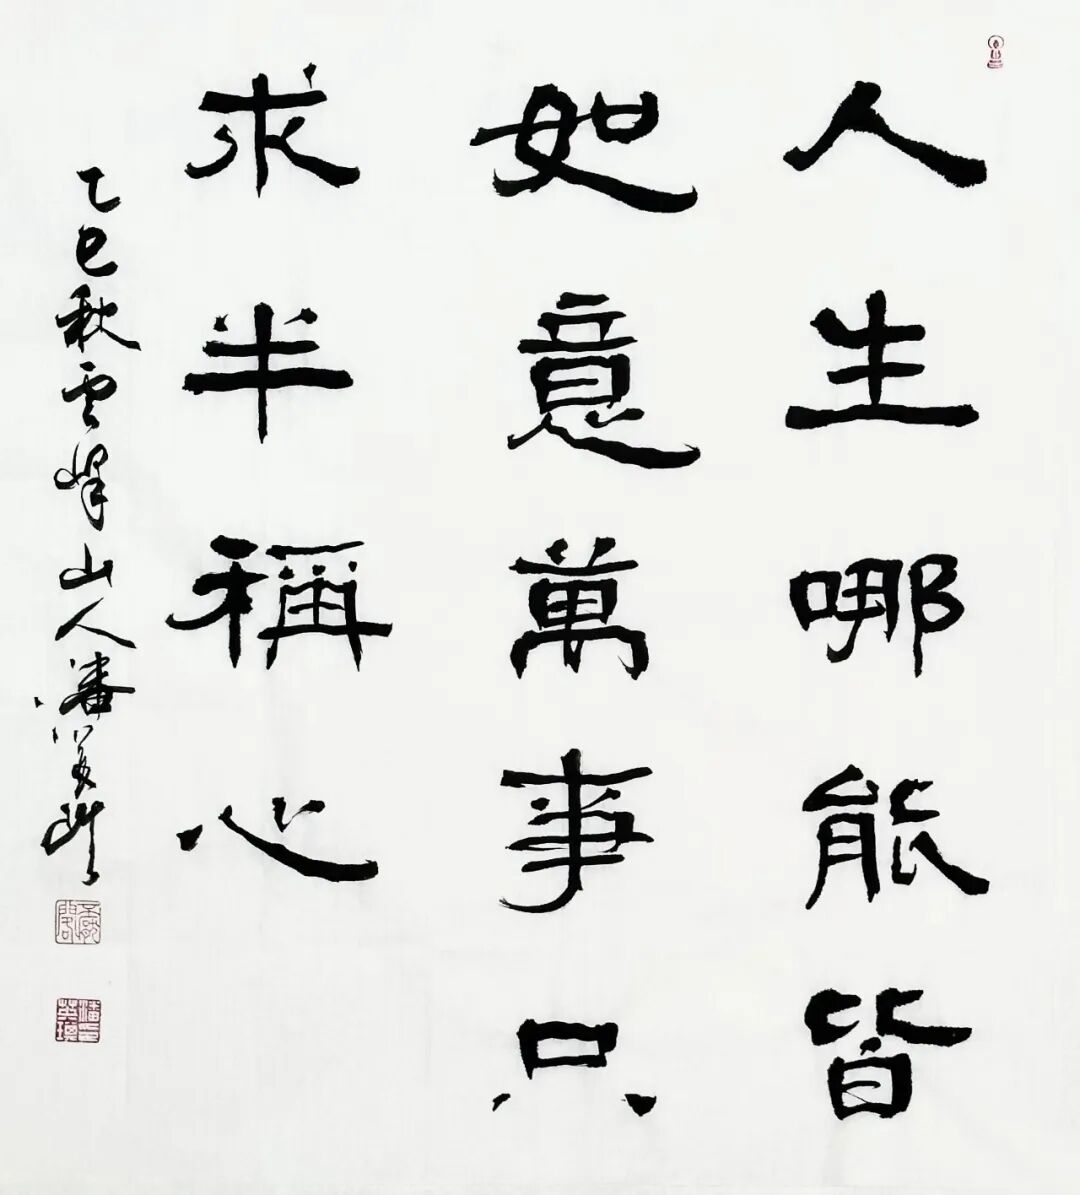 人生哪能皆
如意萬事只
求半稱心
乙巳秋雲峰山人潘英琪
潘英琪